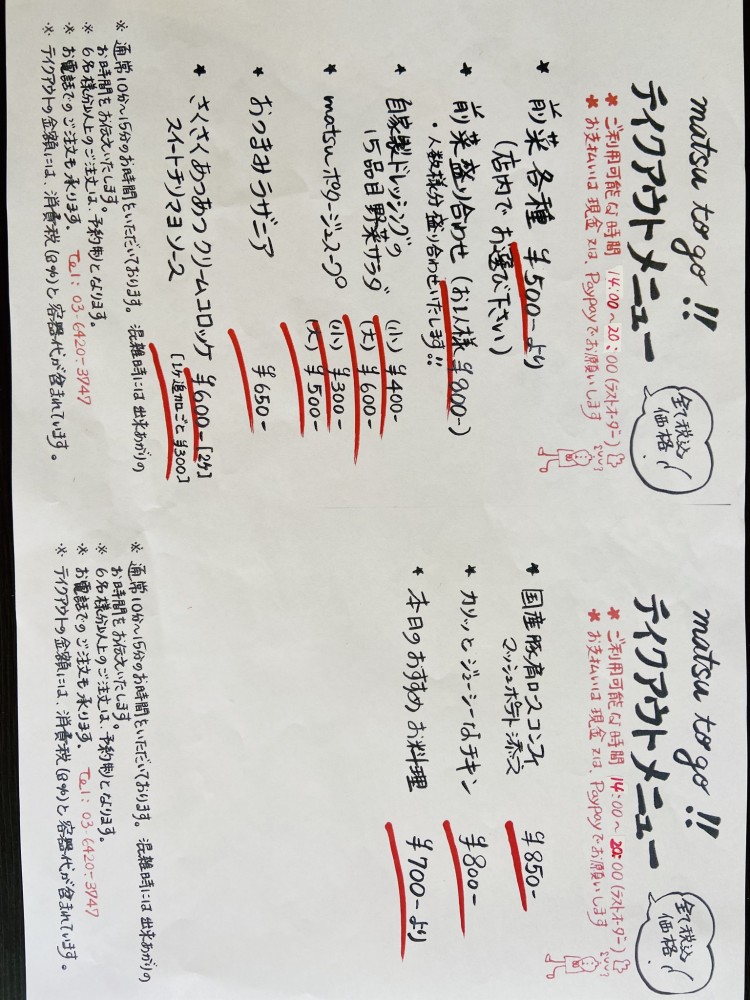 matsu to go!!
テイクアウトメニュー
全て税込
価格!
★ ご利用可能な時間 14:00〜20:00 (ラストオーダー)
★ お支払いは 現金 又は、Paypayでお願いします
★ 前菜各種 ¥500-より
(店内でお選び下さい)
★ 前菜盛り合わせ (お1人様¥800-)
・人数様分 盛り合わせいたします!!
★ 自家製ドレッシングの
15品目野菜サラダ (小) ¥400-
(大) ¥600-
★ matsuポタージュスープ (小) ¥300-
(大) ¥500-
★ おつまみラザニア ¥650-
★ さくさくあつあつクリームコロッケ ¥600-[2ヶ]
スイートチリマヨソース [1ヶ追加ごと¥300]
※ 通常10分〜15分のお時間をいただいております。混雑時には出来あがりの
お時間をお伝えいたします。
※ 6名様分以上のご注文は、予約制となります。
※ お電話でのご注文も承ります。 Tel: 03-6420-3747
※ テイクアウトの金額には、消費税(8%)と容器代が含まれています。
matsu to go!!
テイクアウトメニュー
全て税込
価格!
★ ご利用可能な時間 14:00〜20:00 (ラストオーダー)
★ お支払いは 現金 又は、Paypayでお願いします
★ 国産豚肩ロースコンフィ
マッシュポテト添え ¥850-
★ カリッとジューシーなチキン ¥800-
★ 本日のおすすめお料理 ¥700-より
※ 通常10分〜15分のお時間をいただいております。混雑時には出来あがりの
お時間をお伝えいたします。
※ 6名様分以上のご注文は、予約制となります。
※ お電話でのご注文も承ります。 Tel: 03-6420-3747
※ テイクアウトの金額には、消費税(8%)と容器代が含まれています。